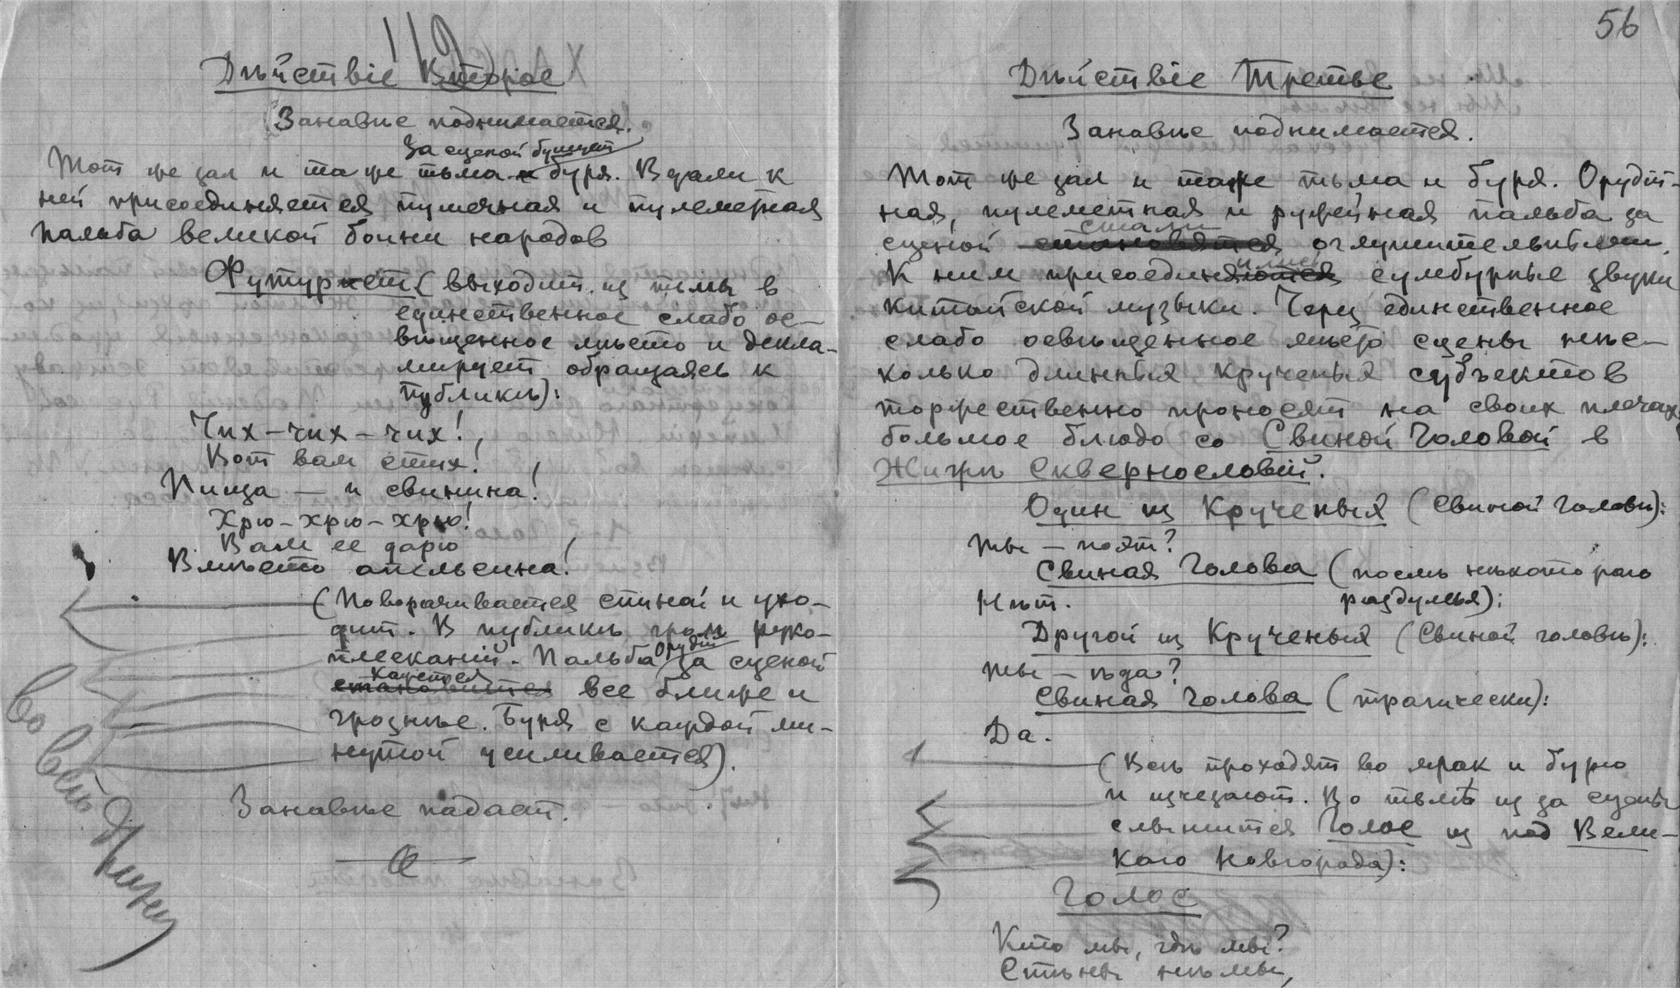 Дѣйствіе Второе
Занавѣс поднимается.
За сценой бушует
Тот же зал и та же тьма и буря. Вдали к
ней присоединяется пушечная и пулеметная
пальба великой бойни народов
Футурист (выходит из тьмы в
единственное слабо ос-
вѣщенное мѣсто и декла-
мирует обращаясь к
публикѣ):
Чих-чих-чих!,
Вот вам стих!
Пища — и свинина!
Хрю-хрю-хрю!
Вам ее дарю
Вмѣсто апельсина!
(Поворачивается спиной и ухо-
дит. В публикѣ гром руко-
плесканій. Пальба орудій за сценой
становится кажется все ближе и
грознѣе. Буря с каждой ми-
нутой усиливается).
Занавѣс падает.
Во всю длину
56
Дѣйствіе Третье
Занавѣс поднимается.
Тот же зал и таже тьма и буря. Орудій-
ная, пулеметная и ружейная пальба за
сценой становятся стали оглушительными.
К ним присоединяются ились сумбурные звуки
китайской музыки. Через единственное
слабо освѣщенное мѣсто сцены нѣс-
колько длинных крученых субъектов
торжественно проносят на своих плечах
большое блюдо со Свиной Головой в
Жиру Сквернословій.
Один из Крученых (Свиной Головѣ):
Ты — поэт?
Свиная Голова (послѣ нѣкотораго
раздумья):
Нѣт.
Другой из Крученых (Свиной головѣ):
Ты — ѣда?
Свиная Голова (трагически):
Да.
(Всѣ проходят во мрак и бурю
и изчезают. Во тьмѣ из за сцены
слышится Голос из под Вели-
каго Новгорода):
Голос
Кто мы, гдѣ мы?
Стѣны нѣмы,